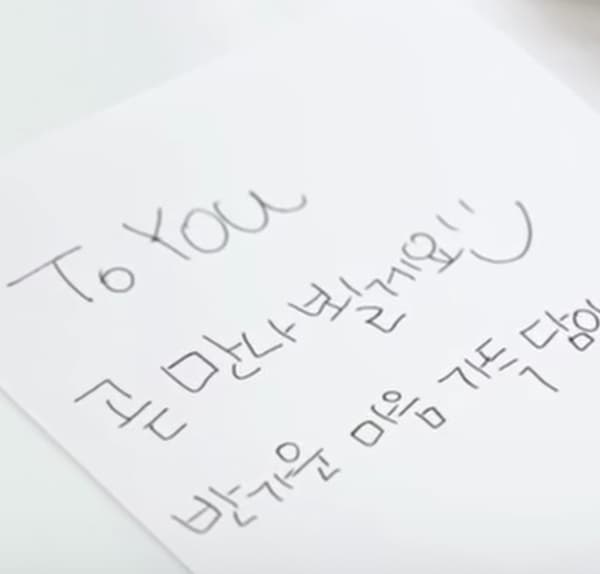 To You
곧 만나 뵐게요!! :)
반가운 마음 가득 담아